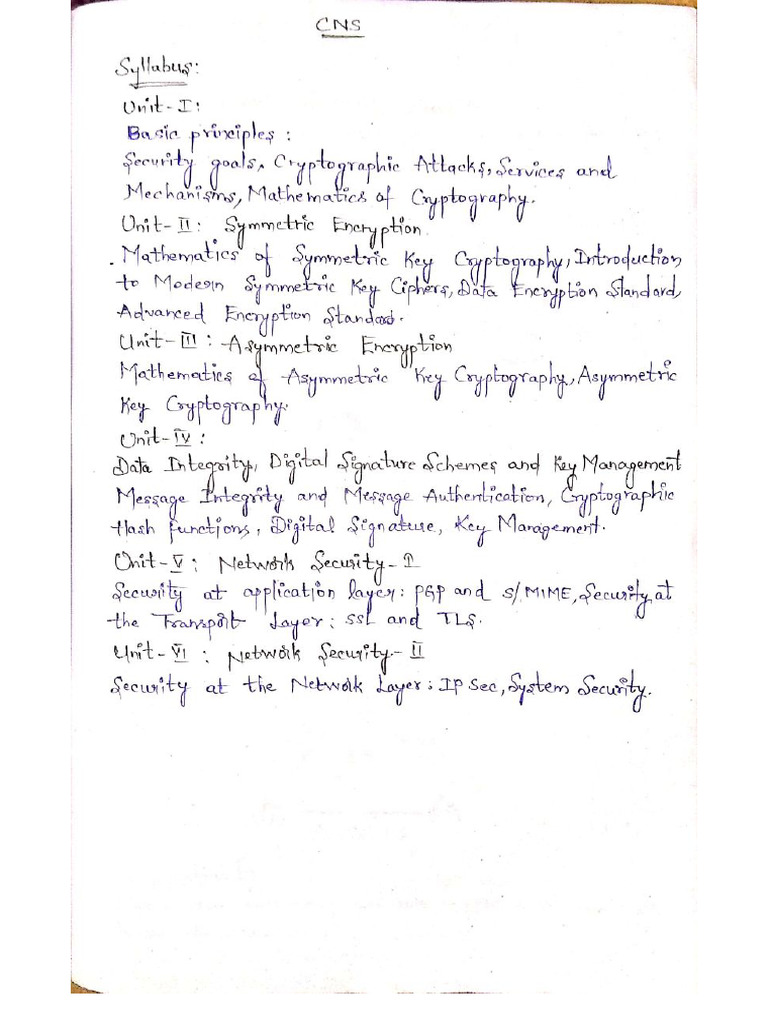 CNS
Syllabus:
Unit-I:
Basic principles:
Security goals, Cryptographic Attacks, Services and
Mechanisms, Mathematics of Cryptography.
Unit-II: Symmetric Encryption.
Mathematics of Symmetric Key Cryptography, Introduction
to Modern Symmetric Key Ciphers, Data Encryption Standard,
Advanced Encryption Standard.
Unit-III: Asymmetric Encryption
Mathematics of Asymmetric Key Cryptography, Asymmetric
Key Cryptography.
Unit-IV:
Data Integrity, Digital Signature Schemes and Key Management
Message Integrity and Message Authentication, Cryptographic
Hash Functions, Digital Signature, Key Management.
Unit-V: Network Security-I
Security at application layer: PGP and S/MIME, Security at
the Transport Layer: SSL and TLS.
Unit-VI: Network Security-II
Security at the Network Layer: IP Sec, System Security.